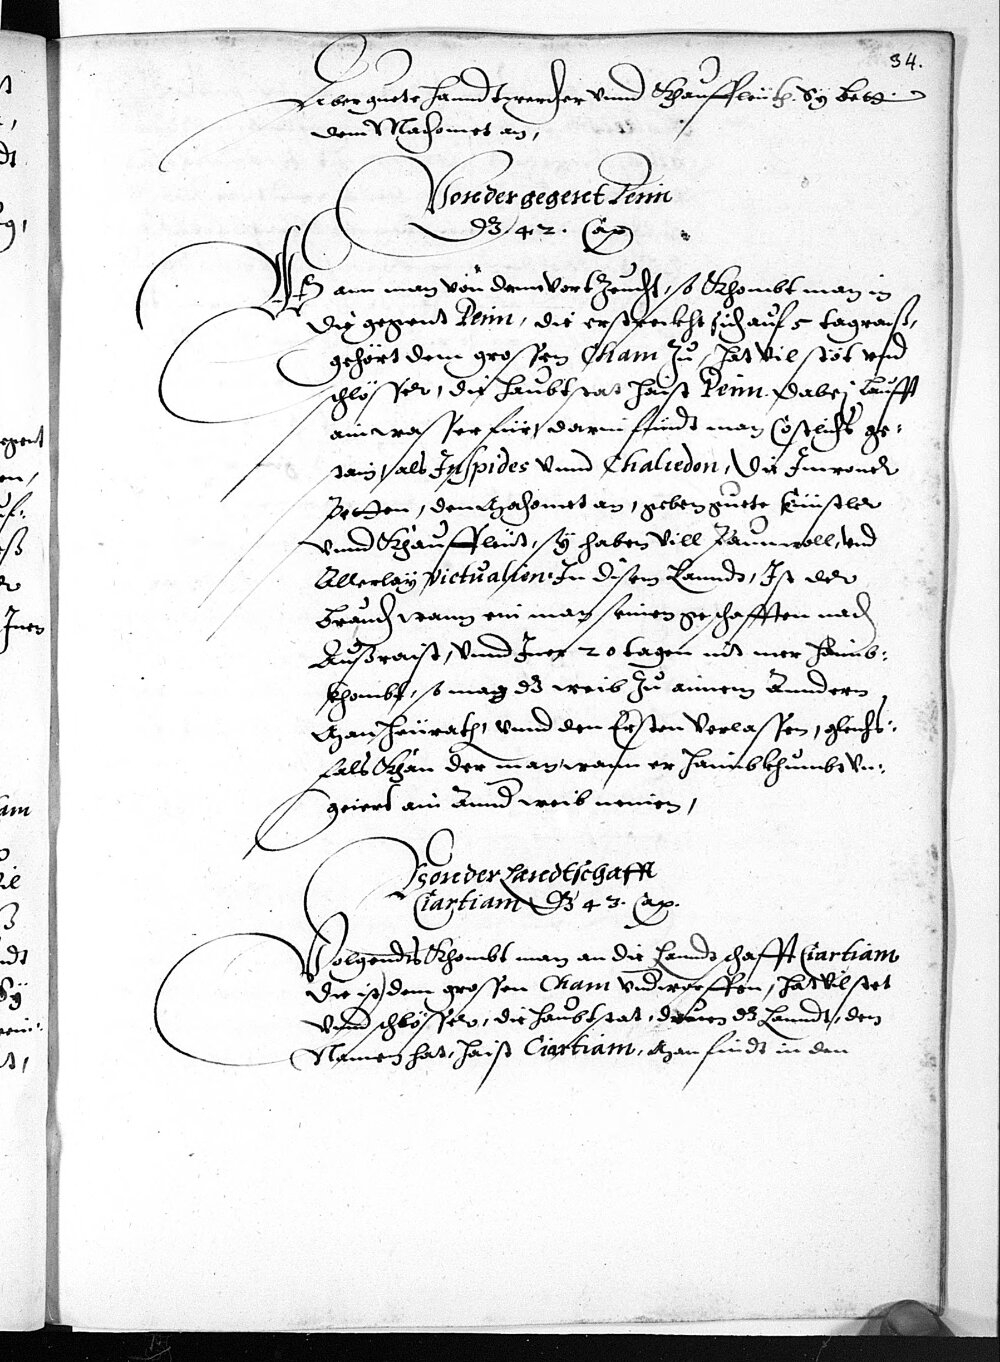 34.
Aber guete handtwercher vnnd Khauffleüth. Sÿ bett
dem Machomet an,
Von der gegent Peim
dz 42. Cap
Wann man von dem ort zeucht, so khombt man in
die gegent Peim, die erstreckht sich auf 5 tagraiß,
gehört dem grossen Cham zu, hat vil stöt vnd
schlösser, die haubtstat haist Peim. dabej laufft
ain wasser für, darin findt man Cöstliche ge-
stain, als Jaspides vnnd Chalcedon, die Inwoner
Petten, den Machomet an, geben guete künstler
vnnd Khauffleüt, sÿ haben vill Paumwoll, vnd
Allerlaÿ victualien. In disem Lannde, Ist der
brauch wann ein man seinen geschafften nach
Außraist, vnnd Inner 20 tagen nit mer haimb-
khombt, so mag dz weib zu ainem Anndern
Man heürath, vnnd den Ersten verlassen, gleichs-
fals Khan der man wann er haimb khumbt vn-
geiert ain Annd weib nemen,
Von der Landtschafft
Ciartiam dz 43. Cap.
Volgendts Khombt man an die Landschafft Ciartiam
die ist dem grossen Cham vnderworffen, hat vil stet
vnnd schlösser, die haubtstat, dz Lanndt, den
Namen hat, haist Ciartiam. Man findt in den